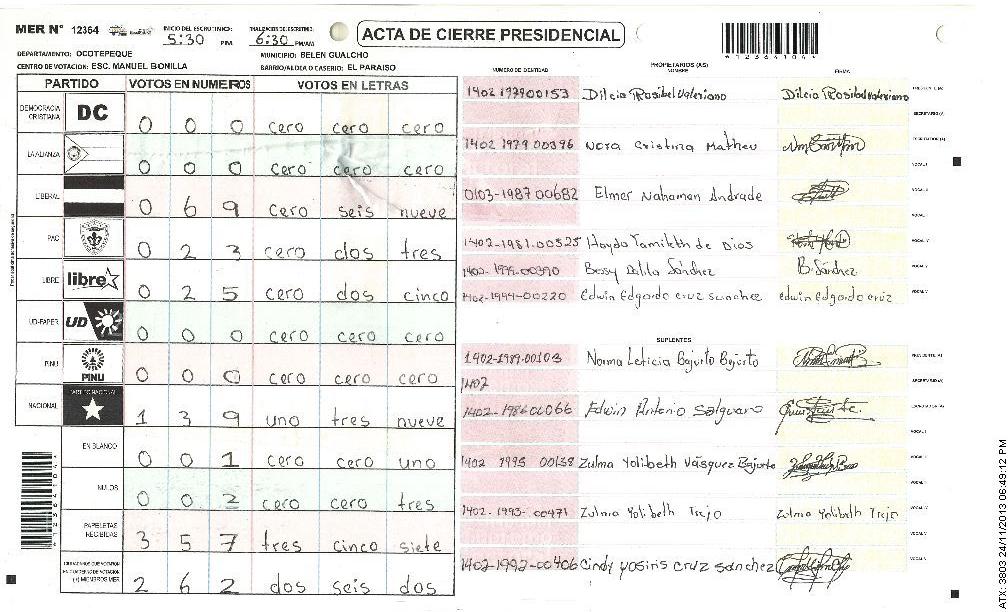 MER N° 12364 INICIO DEL ESCRUTINIO: 5:30 P.M. FINALIZACION DEL ESCRUTINIO: 6:30 PM/AM ACTA DE CIERRE PRESIDENCIAL
DEPARTAMENTO: OCOTEPEQUE MUNICIPIO: BELEN GUALCHO
CENTRO DE VOTACION: ESC. MANUEL BONILLA BARRIO/ALDEA O CASERIO: EL PARAISO
PARTIDO VOTOS EN NUMEROS VOTOS EN LETRAS
DEMOCRACIA CRISTIANA DC 0 0 0 cero cero cero
LA ALIANZA 0 0 0 cero cero cero
LIBERAL 0 6 9 cero seis nueve
PAC 0 2 3 cero dos tres
LIBRE libre 0 2 5 cero dos cinco
UD-FAPER UD 0 0 0 cero cero cero
PINU PINU 0 0 0 cero cero cero
NACIONAL PARTIDO NACIONAL 1 3 9 uno tres nueve
EN BLANCO 0 0 1 cero cero uno
NULOS 0 0 2 cero cero tres
PAPELETAS RECIBIDAS 3 5 7 tres cinco siete
CIUDADANOS QUE VOTARON EN CUADERNO DE VOTACION (+) MIEMBROS MER 2 6 2 dos seis dos
*12364104*
PROPIETARIOS (AS)
NUMERO DE IDENTIDAD NOMBRE FIRMA
1402 197900153 Dilcia Rosibel Valeriano Dilcia Rosibel Valeriano PRESIDENTE (A)
SECRETARIO (A)
1402 1979 00396 Nora Cristina Matheu ESCRUTADOR (A)
VOCAL I
0103-1987 00682 Elmer Nahaman Andrade VOCAL II
1402-1981-00525 Hayde Yamileth de Dios VOCAL IV
1402-1979-00390 Bessy Dalila Sánchez B. Sánchez VOCAL V
1402-1994-00220 Edwin Edgardo cruz sanchez edwin Edgardo cruz
SUPLENTES
1402-1989-00103 Norma Leticia Bajurto Bajurto PRESIDENTE (A)
1402 SECRETARIO (A)
1402-1986 00066 Edwin Antonio Salguero ESCRUTADOR (A)
VOCAL I
1402 1995 00138 Zulma Yolibeth Vásquez Bajurto
1402-1993-00471 Zulma Yolibeth Trejo Zulma Yolibeth Trejo
1402-1992-00406 Cindy yosiris cruz sanchez
ATX: 3903 24/11/2013 06:49:12 PM